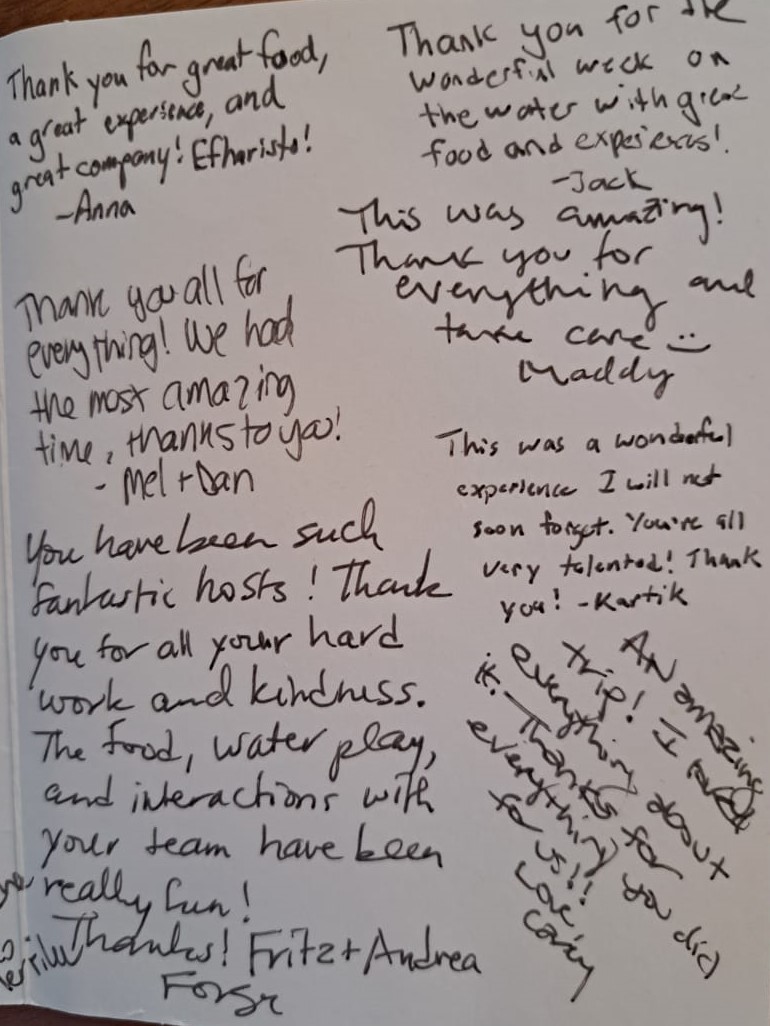 Thank you for great food,
a great experience, and
great company! Efharisto!
-Anna
Thank you for the
wonderful week on
the water with great
food and experiences!
-Jack
This was amazing!
Thank you for
everything and
take care :)
Maddy
Thank you all for
everything! We had
the most amazing
time, thanks to you!
- Mel + Dan
This was a wonderful
experience I will not
soon forget. You're all
very talented! Thank
you! -Kartik
You have been such
fantastic hosts! Thank
you for all your hard
work and kindness.
The food, water play,
and interactions with
your team have been
really fun!
Thanks! Fritz + Andrea
An amazing
trip! I loved
everything about
it. Thanks for
everything you did
for us!!
Love,